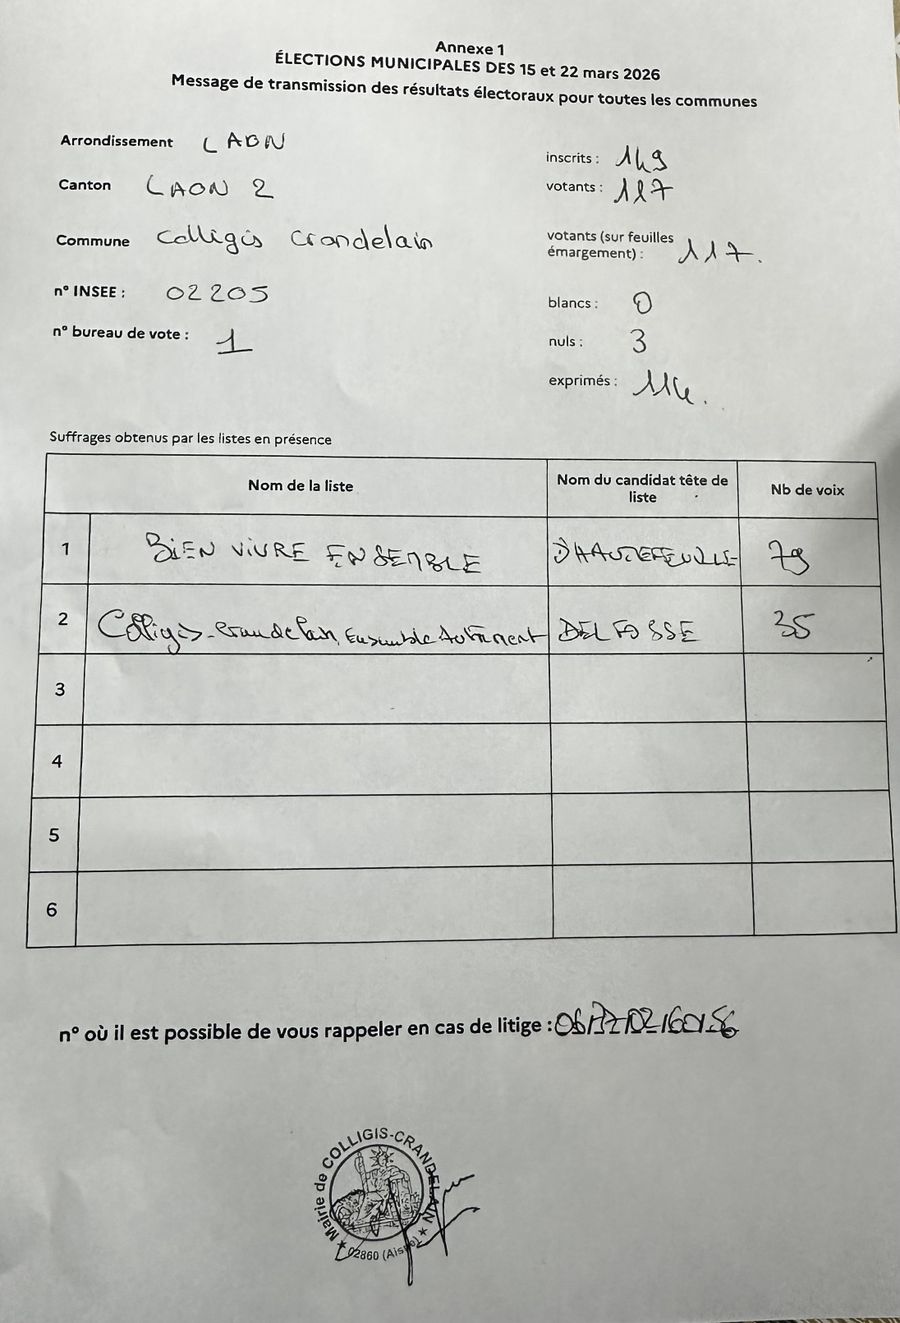 Annexe 1
ÉLECTIONS MUNICIPALES DES 15 et 22 mars 2026
Message de transmission des résultats électoraux pour toutes les communes
Arrondissement LAON
Canton LAON 2
Commune Colligis Crandelain
n° INSEE : 02205
n° bureau de vote : 1
inscrits : 149
votants : 117
votants (sur feuilles
émargement) : 117.
blancs : 0
nuls : 3
exprimés : 114.
Suffrages obtenus par les listes en présence
Nom de la liste
Nom du candidat tête de
liste
Nb de voix
1 BIEN VIVRE ENSEMBLE D'HAUTEFEUILLE 79
2 Colligis-Crandelain, Ensemble Autrement DELFOSSE 35
3
4
5
6
n° où il est possible de vous rappeler en cas de litige :
Mairie de COLLIGIS-CRANDELAIN
★ 02860 (Aisne) ★